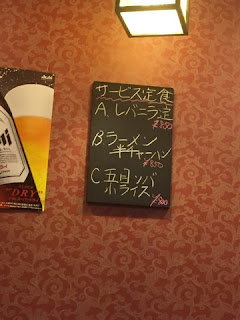 サービス定食
A.レバニラ定
¥850
B.ラーメン
半チャーハン
¥850
C 五目ソバ
小ライス
Asahi
DRY